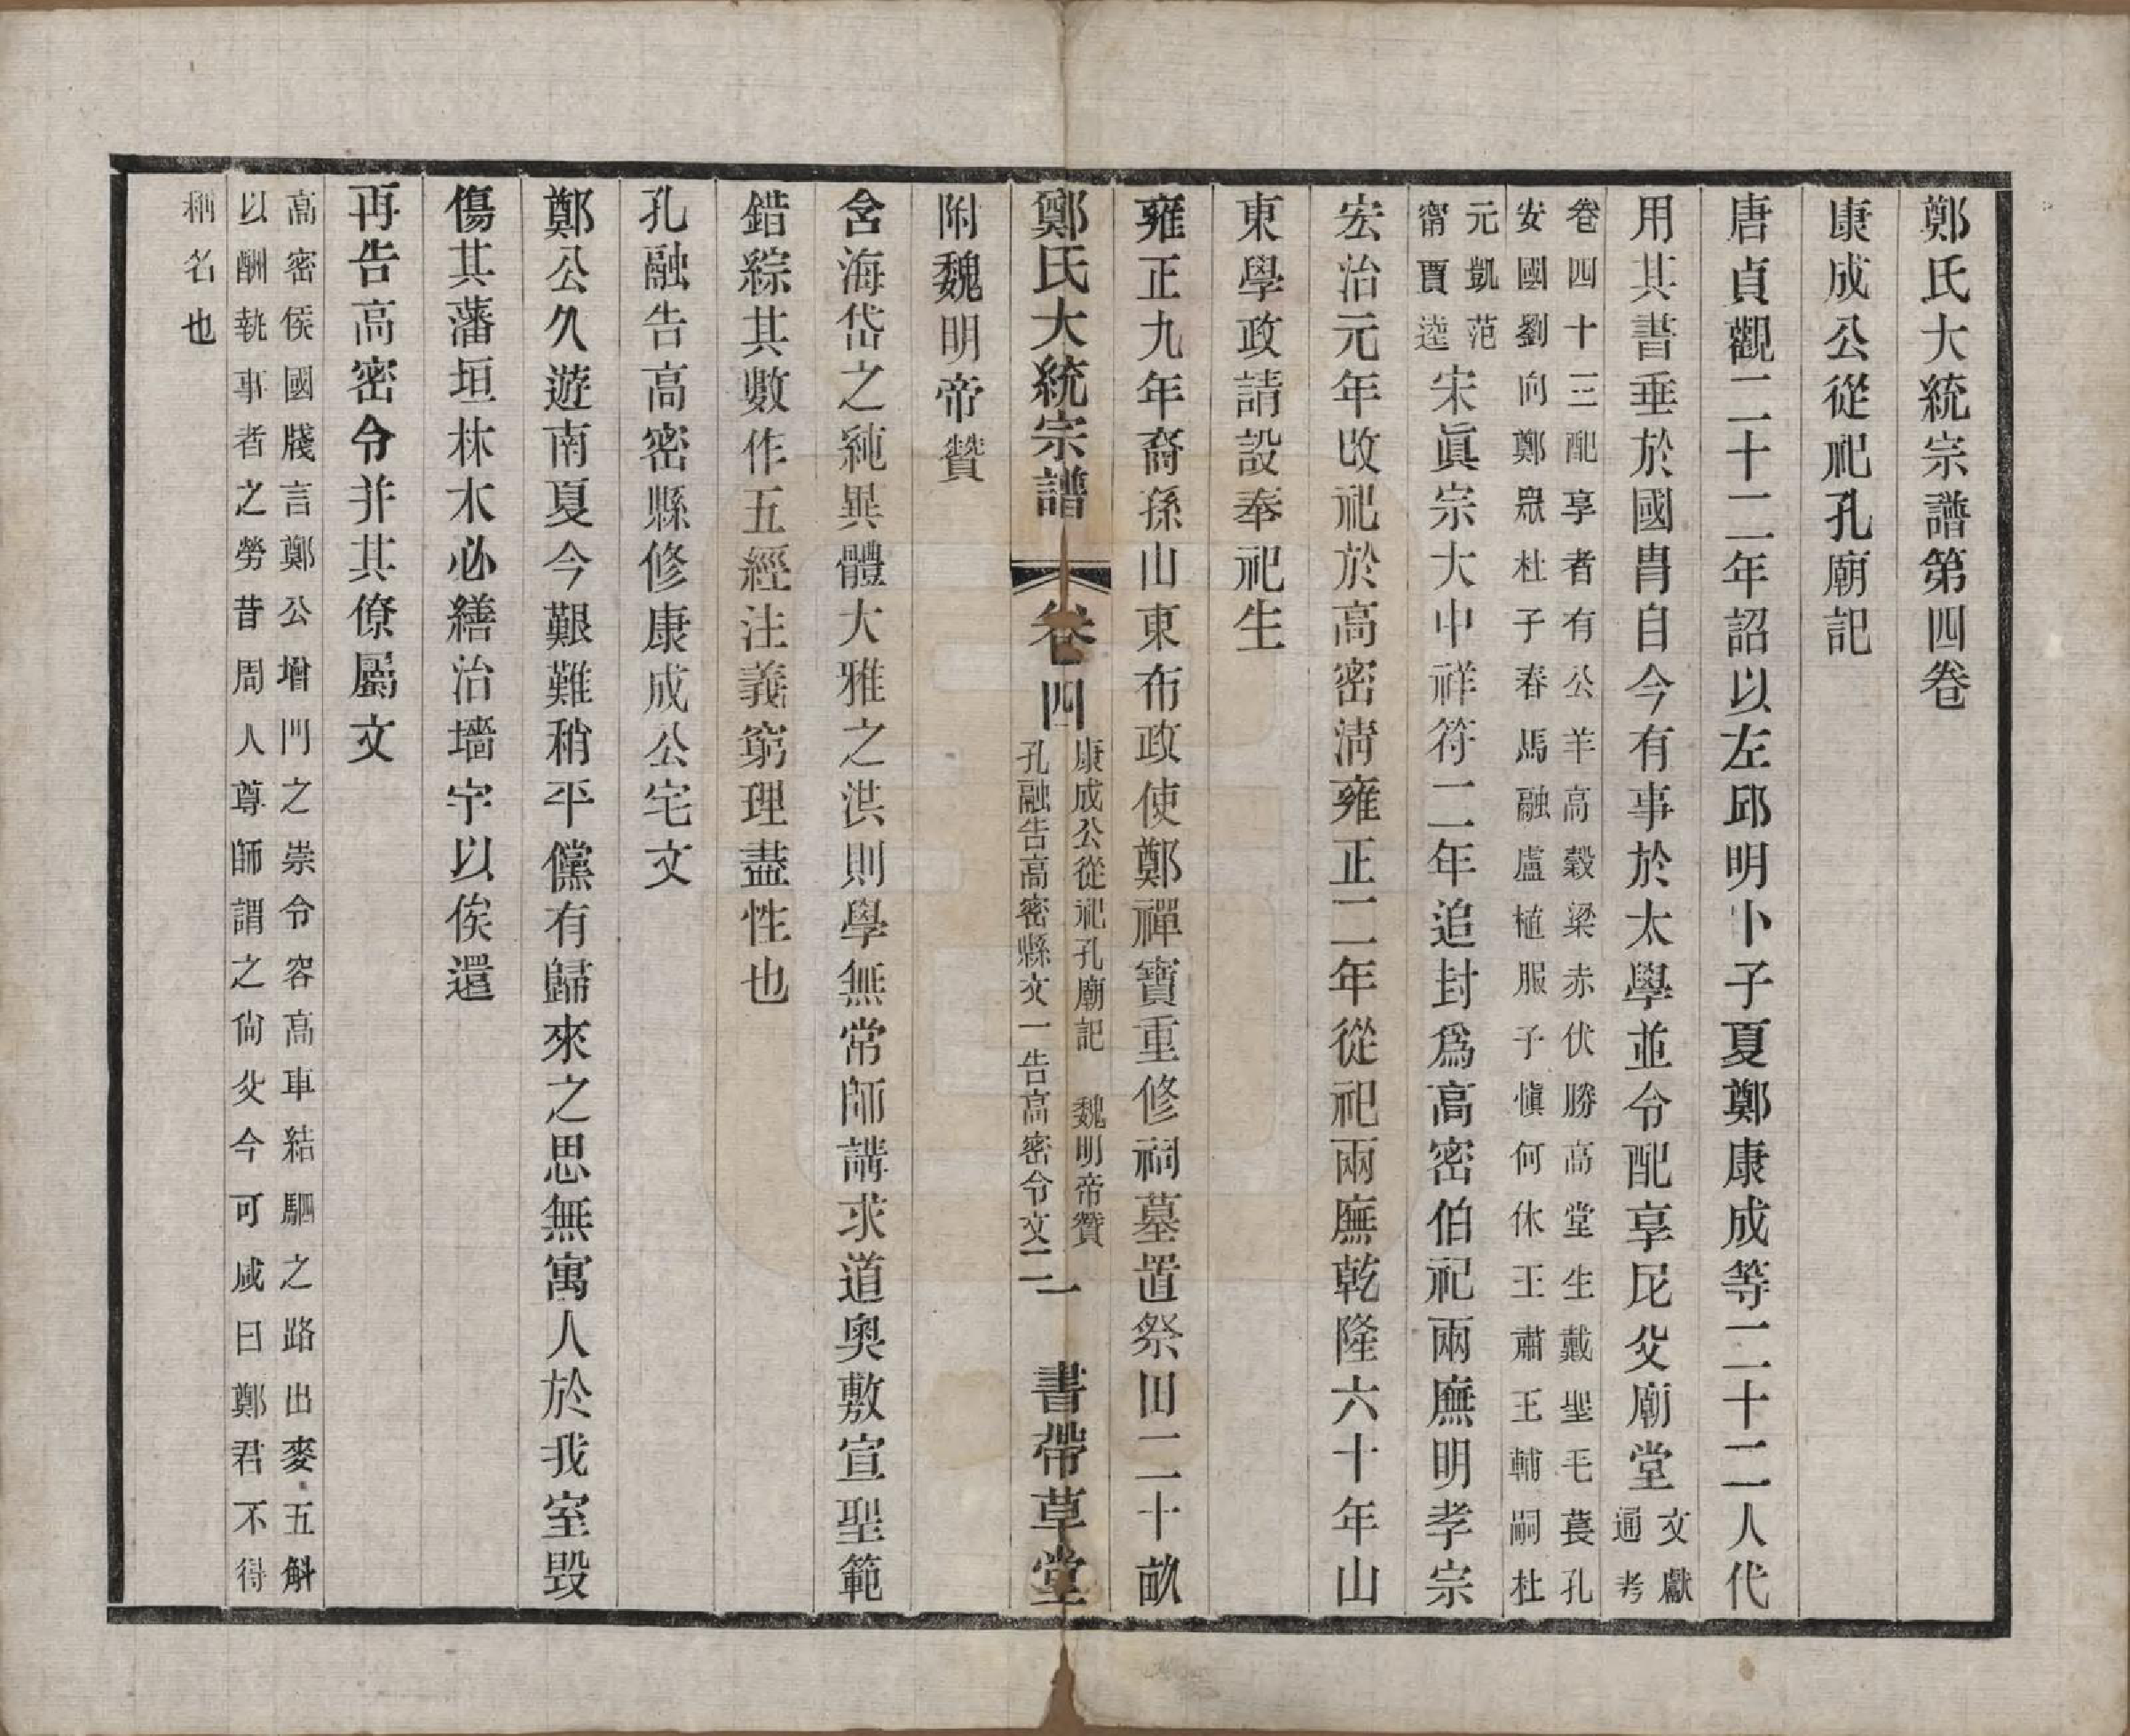 鄭氏大統宗譜第四卷
康成公從祀孔廟記
唐貞觀二十二年詔以左邱明卜子夏鄭康成等二十二人代
用其書垂於國胄自今有事於太學並令配享尼父廟堂文獻
通考
卷四十三配享者有公羊高穀梁赤伏勝高堂生戴聖毛萇孔
安國劉向鄭衆杜子春馬融盧植服子慎何休王肅王輔嗣杜
元凱范
甯賈逵宋眞宗大中祥符二年追封爲高密伯祀兩廡明孝宗
宏治元年改祀於高密淸雍正二年從祀兩廡乾隆六十年山
東學政請設奉祀生
雍正九年裔孫山東布政使鄭禪寶重修祠墓置祭田二十畝
鄭氏大統宗譜
卷四
康成公從祀孔廟記　魏明帝贊
孔融告高密縣文一告高密令文二
一
書帶草堂
附魏明帝贊
含海岱之純異體大雅之洪則學無常師講求道奧敷宣聖範
錯綜其數作五經注義窮理盡性也
孔融告高密縣修康成公宅文
鄭公久遊南夏今艱難稍平儻有歸來之思無寓人於我室毀
傷其藩垣林木必繕治墻宇以俟還
再告高密令并其僚屬文
高密侯國牋言鄭公增門之崇令容高車結駟之路出麥五斛
以酬執事者之勞昔周人尊師謂之尙父今可咸曰鄭君不得
稱名也